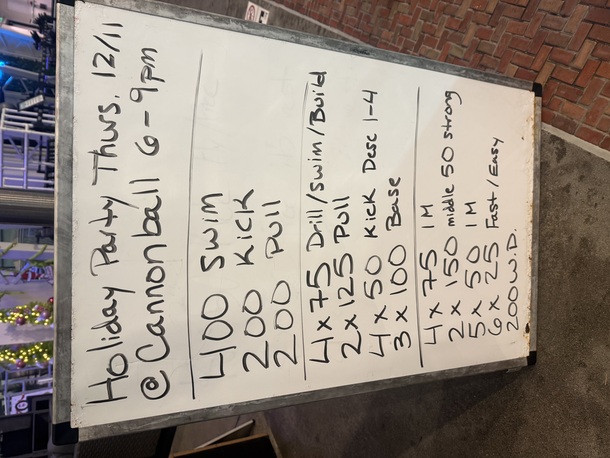 Holiday Party Thurs. 12/11
@Cannonball 6-9pm
400 Swim
200 Kick
200 Pull
4 x 75 Drill/swim/Build
2 x 125 Pull
4 x 50 Kick Desc 1-4
3 x 100 Base
4 x 75 IM
2 x 150 middle 50 strong
5 x 50 IM
6 x 25 Fast/Easy
200 W.D.